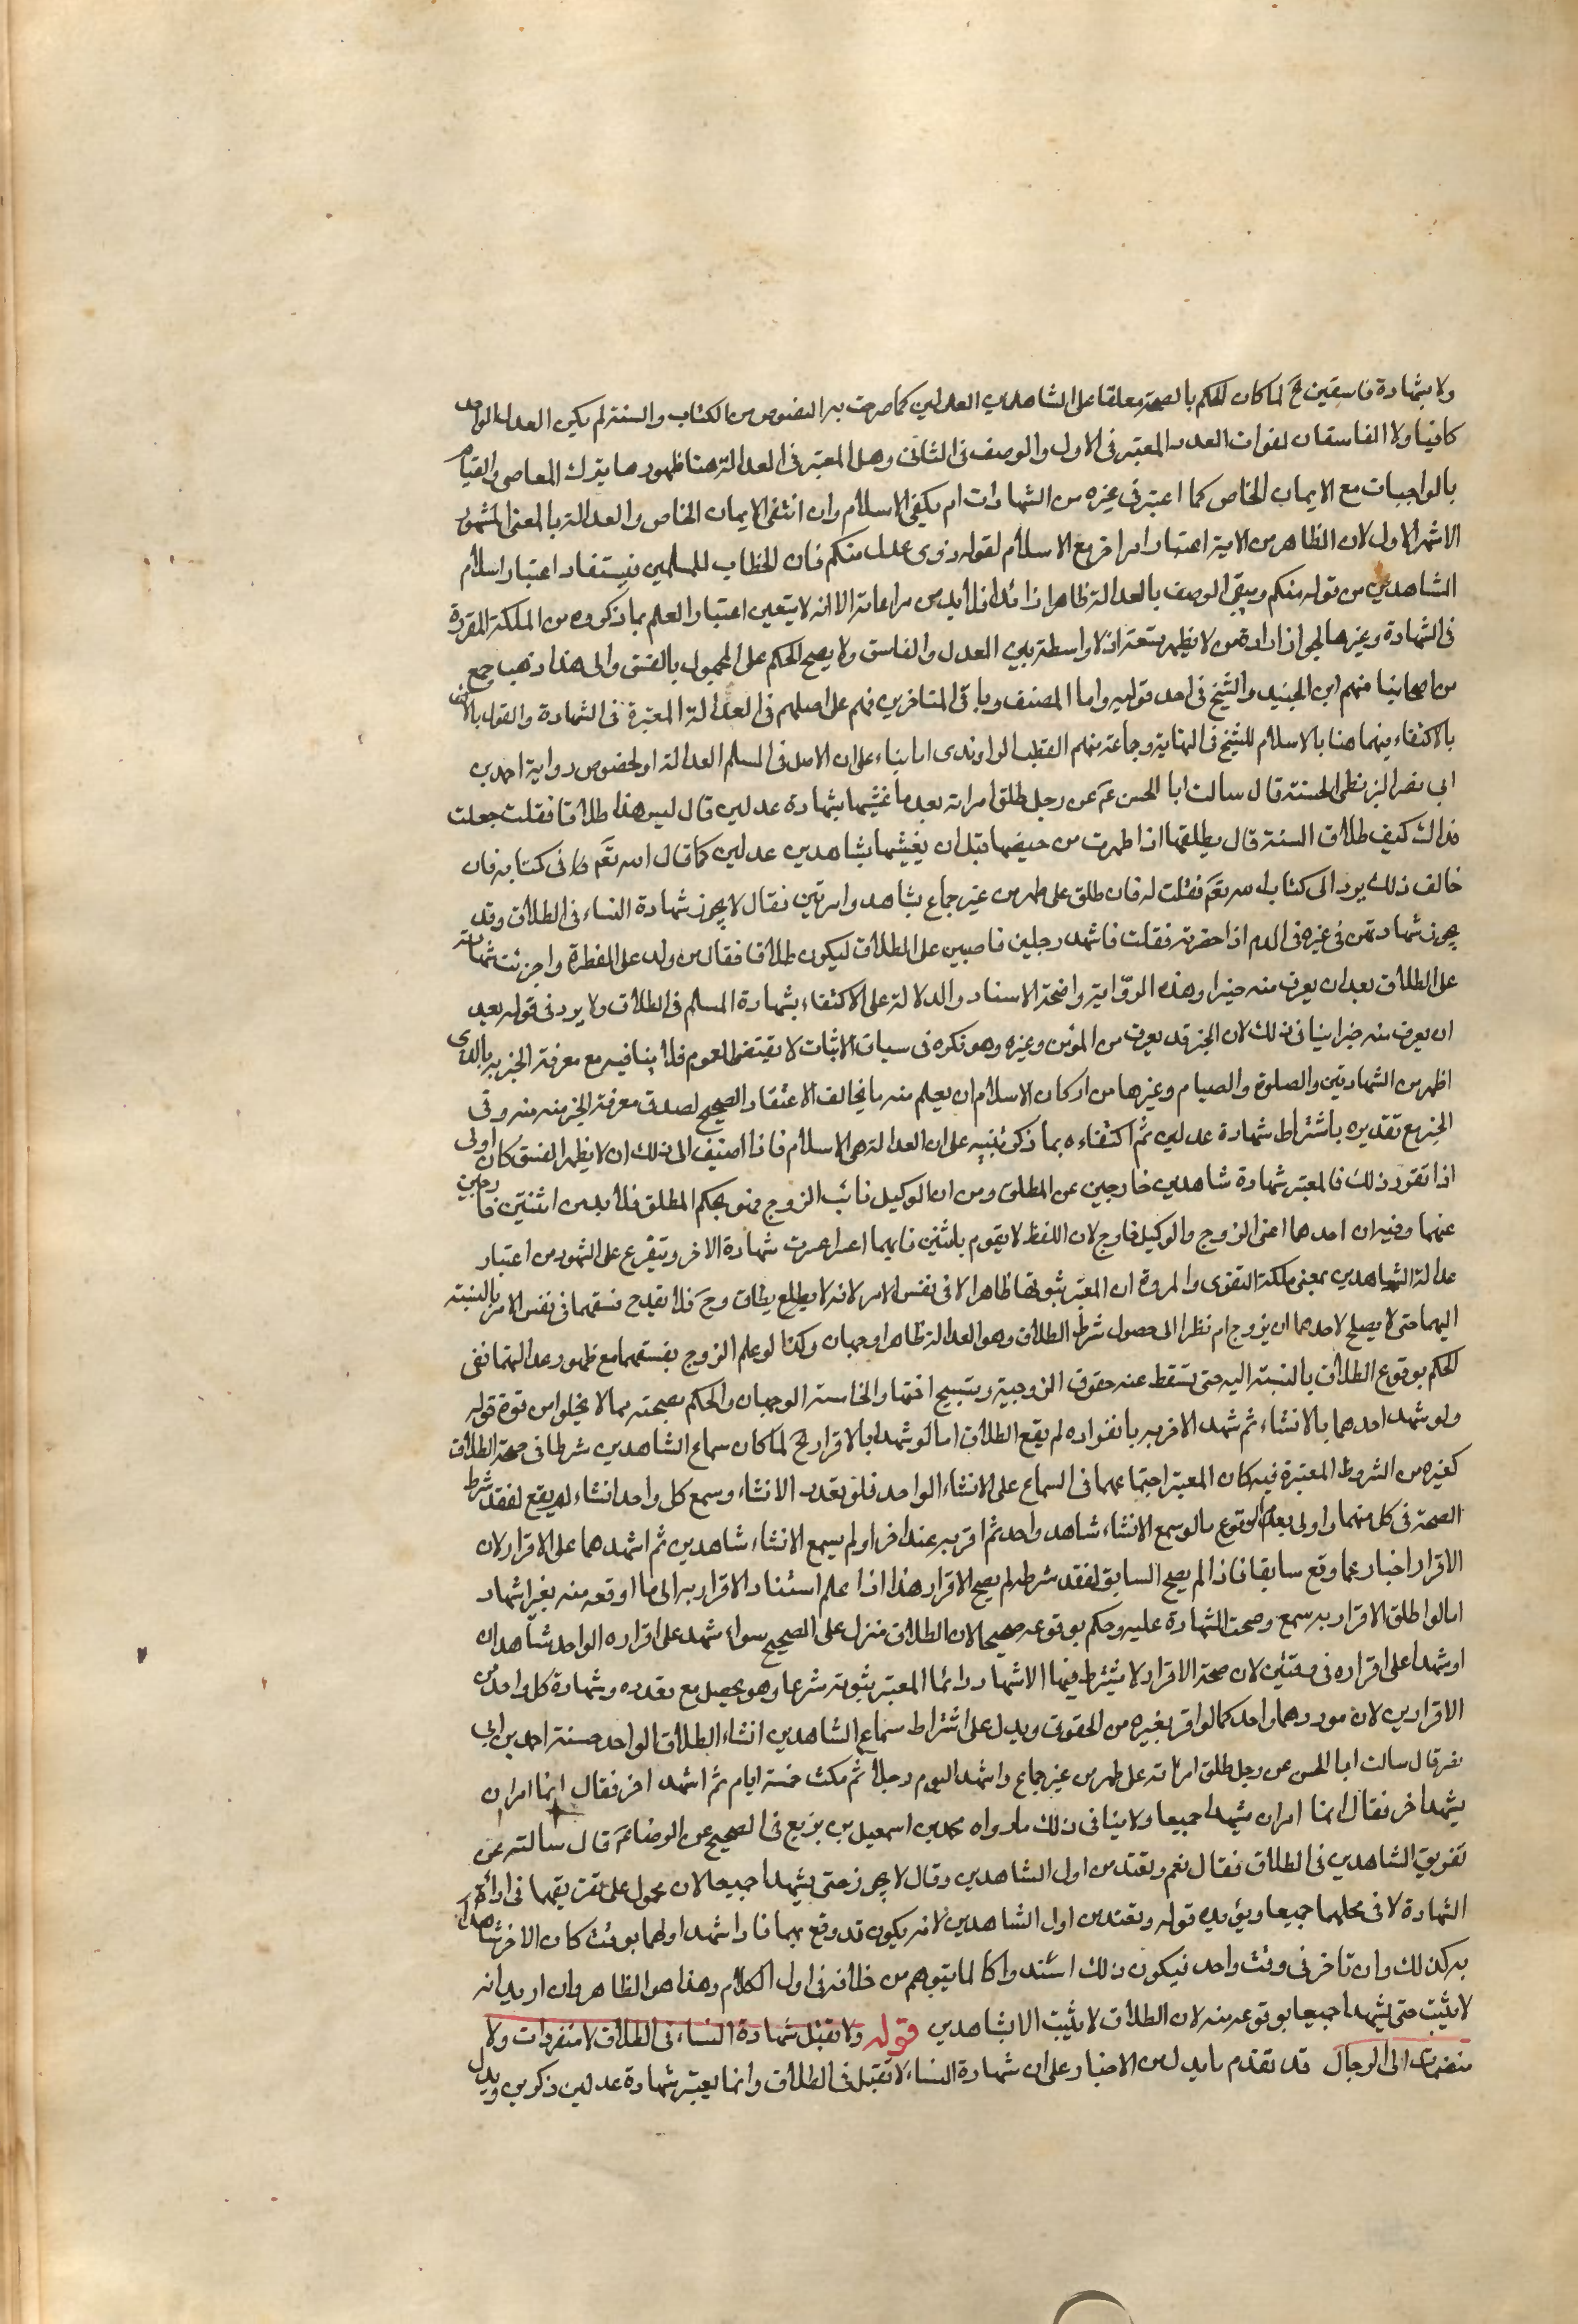 ولا بشهادة فاسقين الخ لما كان الحكم بالصحة معلقا على الشاهدين العدلين كما صرحت به النصوص من الكتاب والسنة لم يكن العدل الواحد
كافيا ولا الفاسقان لفوات العدد المعتبر في الاول والوصف في الثاني وهل المعتبر في العدالة هنا ظهورها بترك المعاصي والقيام
بالواجبات مع الايمان الخاص كما اعتبر في غيره من الشهادات ام يكفي الاسلام وان انتفى الايمان الخاص والعدالة بالمعنى المشهور
الاشهر الاول لان الظاهر من الاية اعتبار امر اخر مع الاسلام لقوله ذوى عدل منكم فان الخطاب للمسلمين فيستفاد اعتبار اسلام
الشاهدين من قوله منكم ويبقى الوصف بالعدالة ظاهرا زائدا فلا بد من مراعاته الا انه لا يتعين اعتبار العلم بما ذكروه من الملكة المقررة
في الشهادة وغيرها لجواز ارادة من لا يظهر بستعه اذ لا واسطة بين العدل والفاسق ولا يصح الحكم على المجهول بالفسق والى هذا ذهب جمع
من اصحابنا منهم ابن الجنيد والشيخ في احد قوليه واما المصنف وباقي المتاخرين فهم على اصلهم في العدالة المعتبرة في الشهادة والقول بالاكتفا
بالاكتفاء بينهما هنا بالاسلام للشيخ في النهاية وجماعة منهم القطب الراوندى اما بناء على ان الاصل في المسلم العدالة او لخصوص رواية احمد بن
ابي نصر البزنطي الحسنة قال سالت ابا الحسن عم عن رجل طلق امراته بعد ما غشيها بشهادة عدلين قال ليس هذا طلاقا فقلت جعلت
فداك كيف طلاق السنة قال يطلقها اذا طهرت من حيضها قبل ان يغشيها بشاهدين عدلين كما قال الله تعم في كتابه فان
خالف ذلك يرد الى كتاب الله تعم فقلت له فان طلق على طهر من غير جماع بشاهد وامرتين فقال لا يجوز شهادة النساء في الطلاق وقد
يجوز شهادتهن في غيره في الدم اذا حضرته فقلت فاشهد رجلين ناصبين على الطلاق ليكون طلاقا فقال من ولد على الفطرة واجزئت شهادته
على الطلاق بعد ان يعرف منه خيرا وهذه الرواية واضحة الاسناد والدلالة على الاكتفاء بشهادة المسلم في الطلاق ولا يرد في قوله بعد
ان يعرف منه خيرا ينافي ذلك لان الخير قد يعرف من المؤمن وغيره وهو نكرة في سياق الاثبات لا يقتضي العموم فلا ينافيه مع معرفة الخير به بالذي
اظهر من الشهادتين والصلوة والصيام وغيرها من اركان الاسلام ان يعلم منه ما يخالف الاعتقاد الصحيح لصدق معرفة الخير منه منه وفي
الخبر مع تقديره باشتراط شهادة عدلين ثم اكتفاءه بما ذكر تنبيه على ان العدالة هي الاسلام فاذا اضيف الى ذلك ان لا يظهر الفسق كان اولى
اذا تقرر ذلك فالمعتبر شهادة شاهدين خارجين عن المطلق ومن ان الوكيل نائب الزوج فهو بحكم المطلق فلا بد من اثنين خارجين
عنهما وفيه ان احدهما اعني الزوج والوكيل خارج لان اللفظ لا يقوم باثنين فايهما اعتبر عبرت شهادة الاخر ويتفرع على المشهور من اعتبار
عدالة الشاهدين بمعنى ملكة التقوى والمروة ان المعتبر ثبوتها ظاهرا لا في نفس الامر لانه لا يطلع يطاق وح فلا يقدح فسقهما في نفس الامر بالنسبة
اليهما حتى لا يصلح لاحدهما ان يزوج ام نظرا الى حصول شرط الطلاق وهو العدالة ظاهرا وجهان وكذا لو علم الزوج بفسقهما مع ظهور عدالتهما ففي
الحكم بوقوع الطلاق بالنسبة اليه حتى تسقط عنه حقوق الزوجية ويستبيح اختها والخامسة الوجهان والحكم بصحته بما لا يخلوا من قوة قوله
ولو شهد احدهما بالانشاء ثم شهد الاخر به بانفراده لم يقع الطلاق اما لو شهدا بالاقرار الخ لما كان سماع الشاهدين شرطا في صحة الطلاق
كغيره من الشروط المعتبرة فيه كان المعتبر اجتماعهما في السماع على الانشاء الواحد فلو تعدد الانشاء وسمع كل واحد انشاء لم يقع لفقد شرط
الصحة في كل منهما واولى بعدم الوقوع ما لو سمع الانشاء شاهد واحد ثم اقر به عند اخر او لم يسمع الانشاء شاهدين ثم اشهدهما على الاقرار لان
الاقرار اخبار عما وقع سابقا فاذا لم يصح السابق لفقد شرطه لم يصح الاقرار هذا اذا علم استناد الاقرار به الى ما اوقعه منه بغير اشهاد
اما لو اطلق الاقرار به سمع وصحت الشهادة عليه وحكم بوقوعه صحيحا لان الطلاق منزل على الصحيح سواء شهد على اقراره الواحد شاهدان
او شهدا على اقراره في وقتين لان صحة الاقرار لا يشترط فيها الاشهاد وانما المعتبر ثبوته شرعا وهو يحصل مع تعدده وشهادة كل واحد من
الاقرارين لان موردهما واحد كما لو اقر بغيره من الحقوق ويدل على اشتراط سماع الشاهدين انشاء الطلاق الواحد حسنة احمد بن ابي
نصر قال سالت ابا الحسن عن رجل طلق امراته على طهر من غير جماع واشهد اليوم رجلا ثم مكث خمسة ايام ثم اشهد اخر فقال انما امر ان
يشهد اخر فقال انما امر ان يشهدا جميعا ولا ينافي ذلك ما رواه محمد بن اسمعيل بن بزيع في الصحيح عن الرضا عم قال سالته عن
تفريق الشاهدين في الطلاق فقال نعم وتعتد من اول الشاهدين وقال لا يجوز حتى يشهدا جميعا لان محمول على تفريقهما في اداء
الشهادة لا في تحملهما جميعا ويؤيده قوله وتعتد من اول الشاهدين لانه يكون قد وقع بهما فاذا شهد اولهما بوقت كان الاخر شاهدا
به كذلك وان تاخر في وقت واحد فيكون ذلك استدراكا لما يتوهم من خلافه في اول الكلام وهذا هو الظاهر وان اريد انه
لا يثبت حتى يشهدا جميعا بوقوعه منه لان الطلاق لا يثبت الا بشاهدين قوله ولا تقبل شهادة النساء في الطلاق لا منفردات ولا
منضمات الى الرجال قد تقدم ما يدل من الاخبار على ان شهادة النساء لا تقبل في الطلاق وانما يعتبر شهادة عدلين ذكرين ويدل